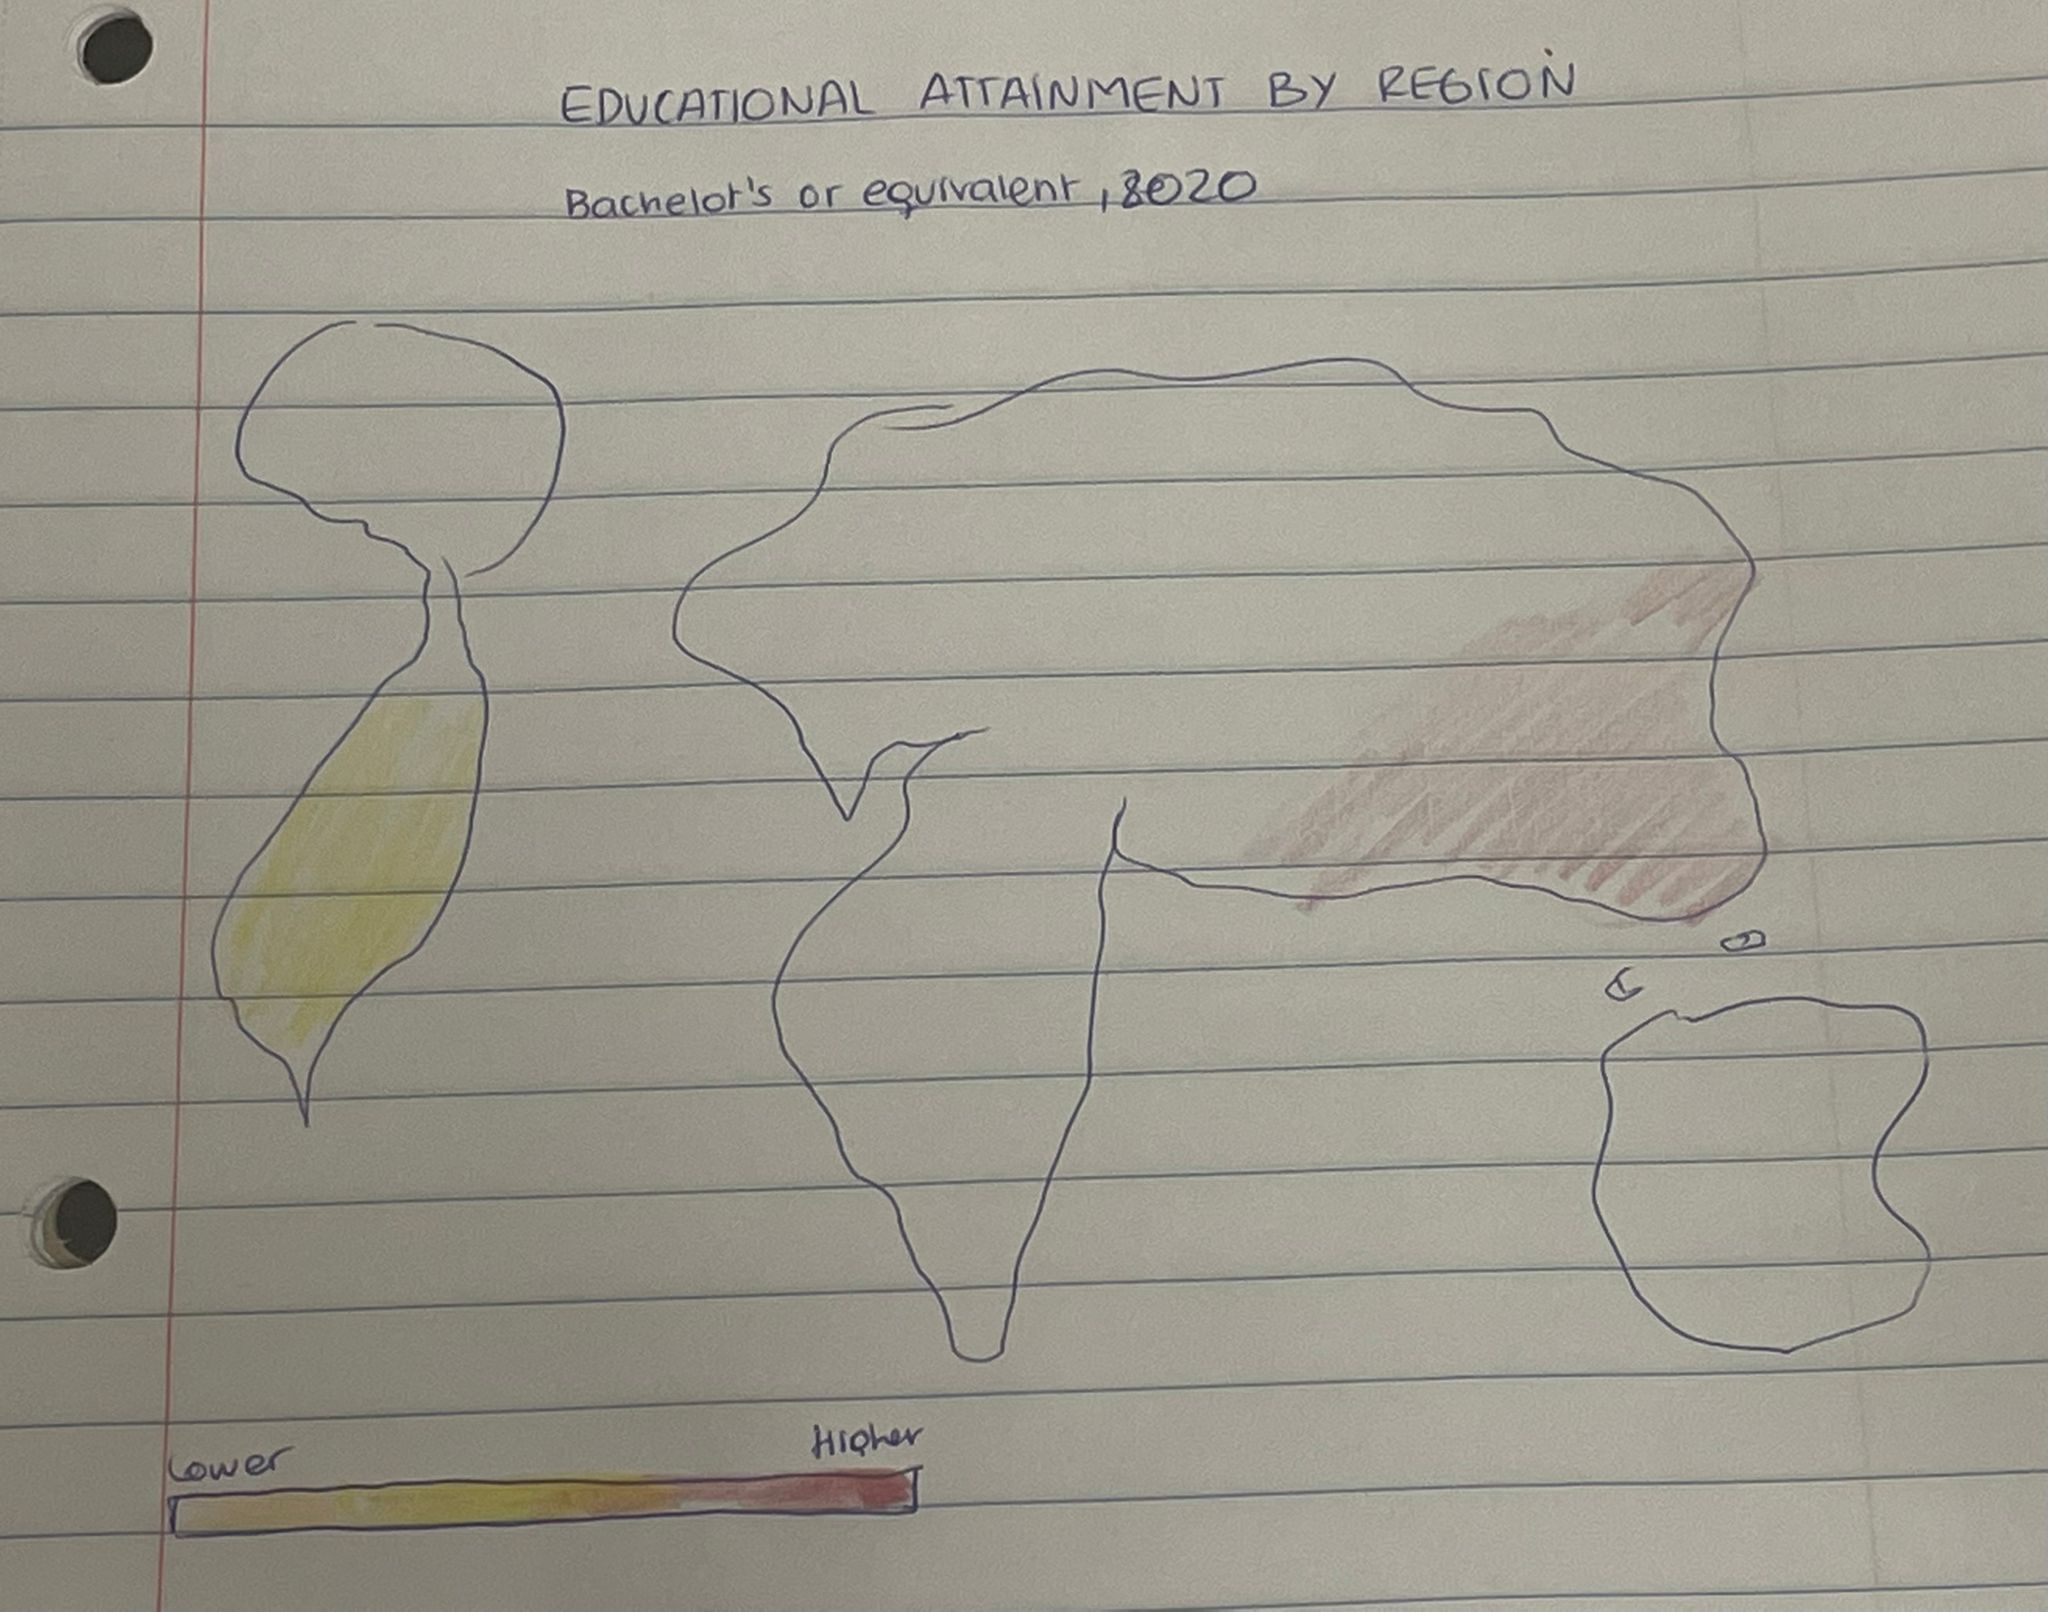 EDUCATIONAL ATTAINMENT BY REGION
Bachelor's or equivalent, 2020
Lower
Higher